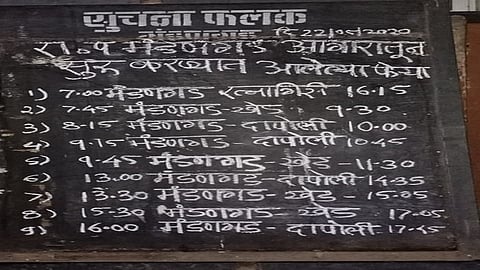 सुचना फलक
मंडणगड दि 22/05/2020
रा.प मंडणगड आगारातून
सुरू करण्यात आलेल्या फेऱ्या
1) 7.00 मंडणगड रत्नागिरी 16.15
2) 7.45 मंडणगड-खेड 9.30
3) 8.15 मंडणगड - दापोली 10.00
4) 9.15 मंडणगड - दापोली 10.45
5) 9.45 मंडणगड - खेड - 11:30
6) 13.00 मंडणगड - दापोली 14.35
7) 13.30 मंडणगड - खेड - 15.05
8) 15-30 मंडणगड - खेड 17.05
9) 16.00 मंडणगड - दापोली 17.45